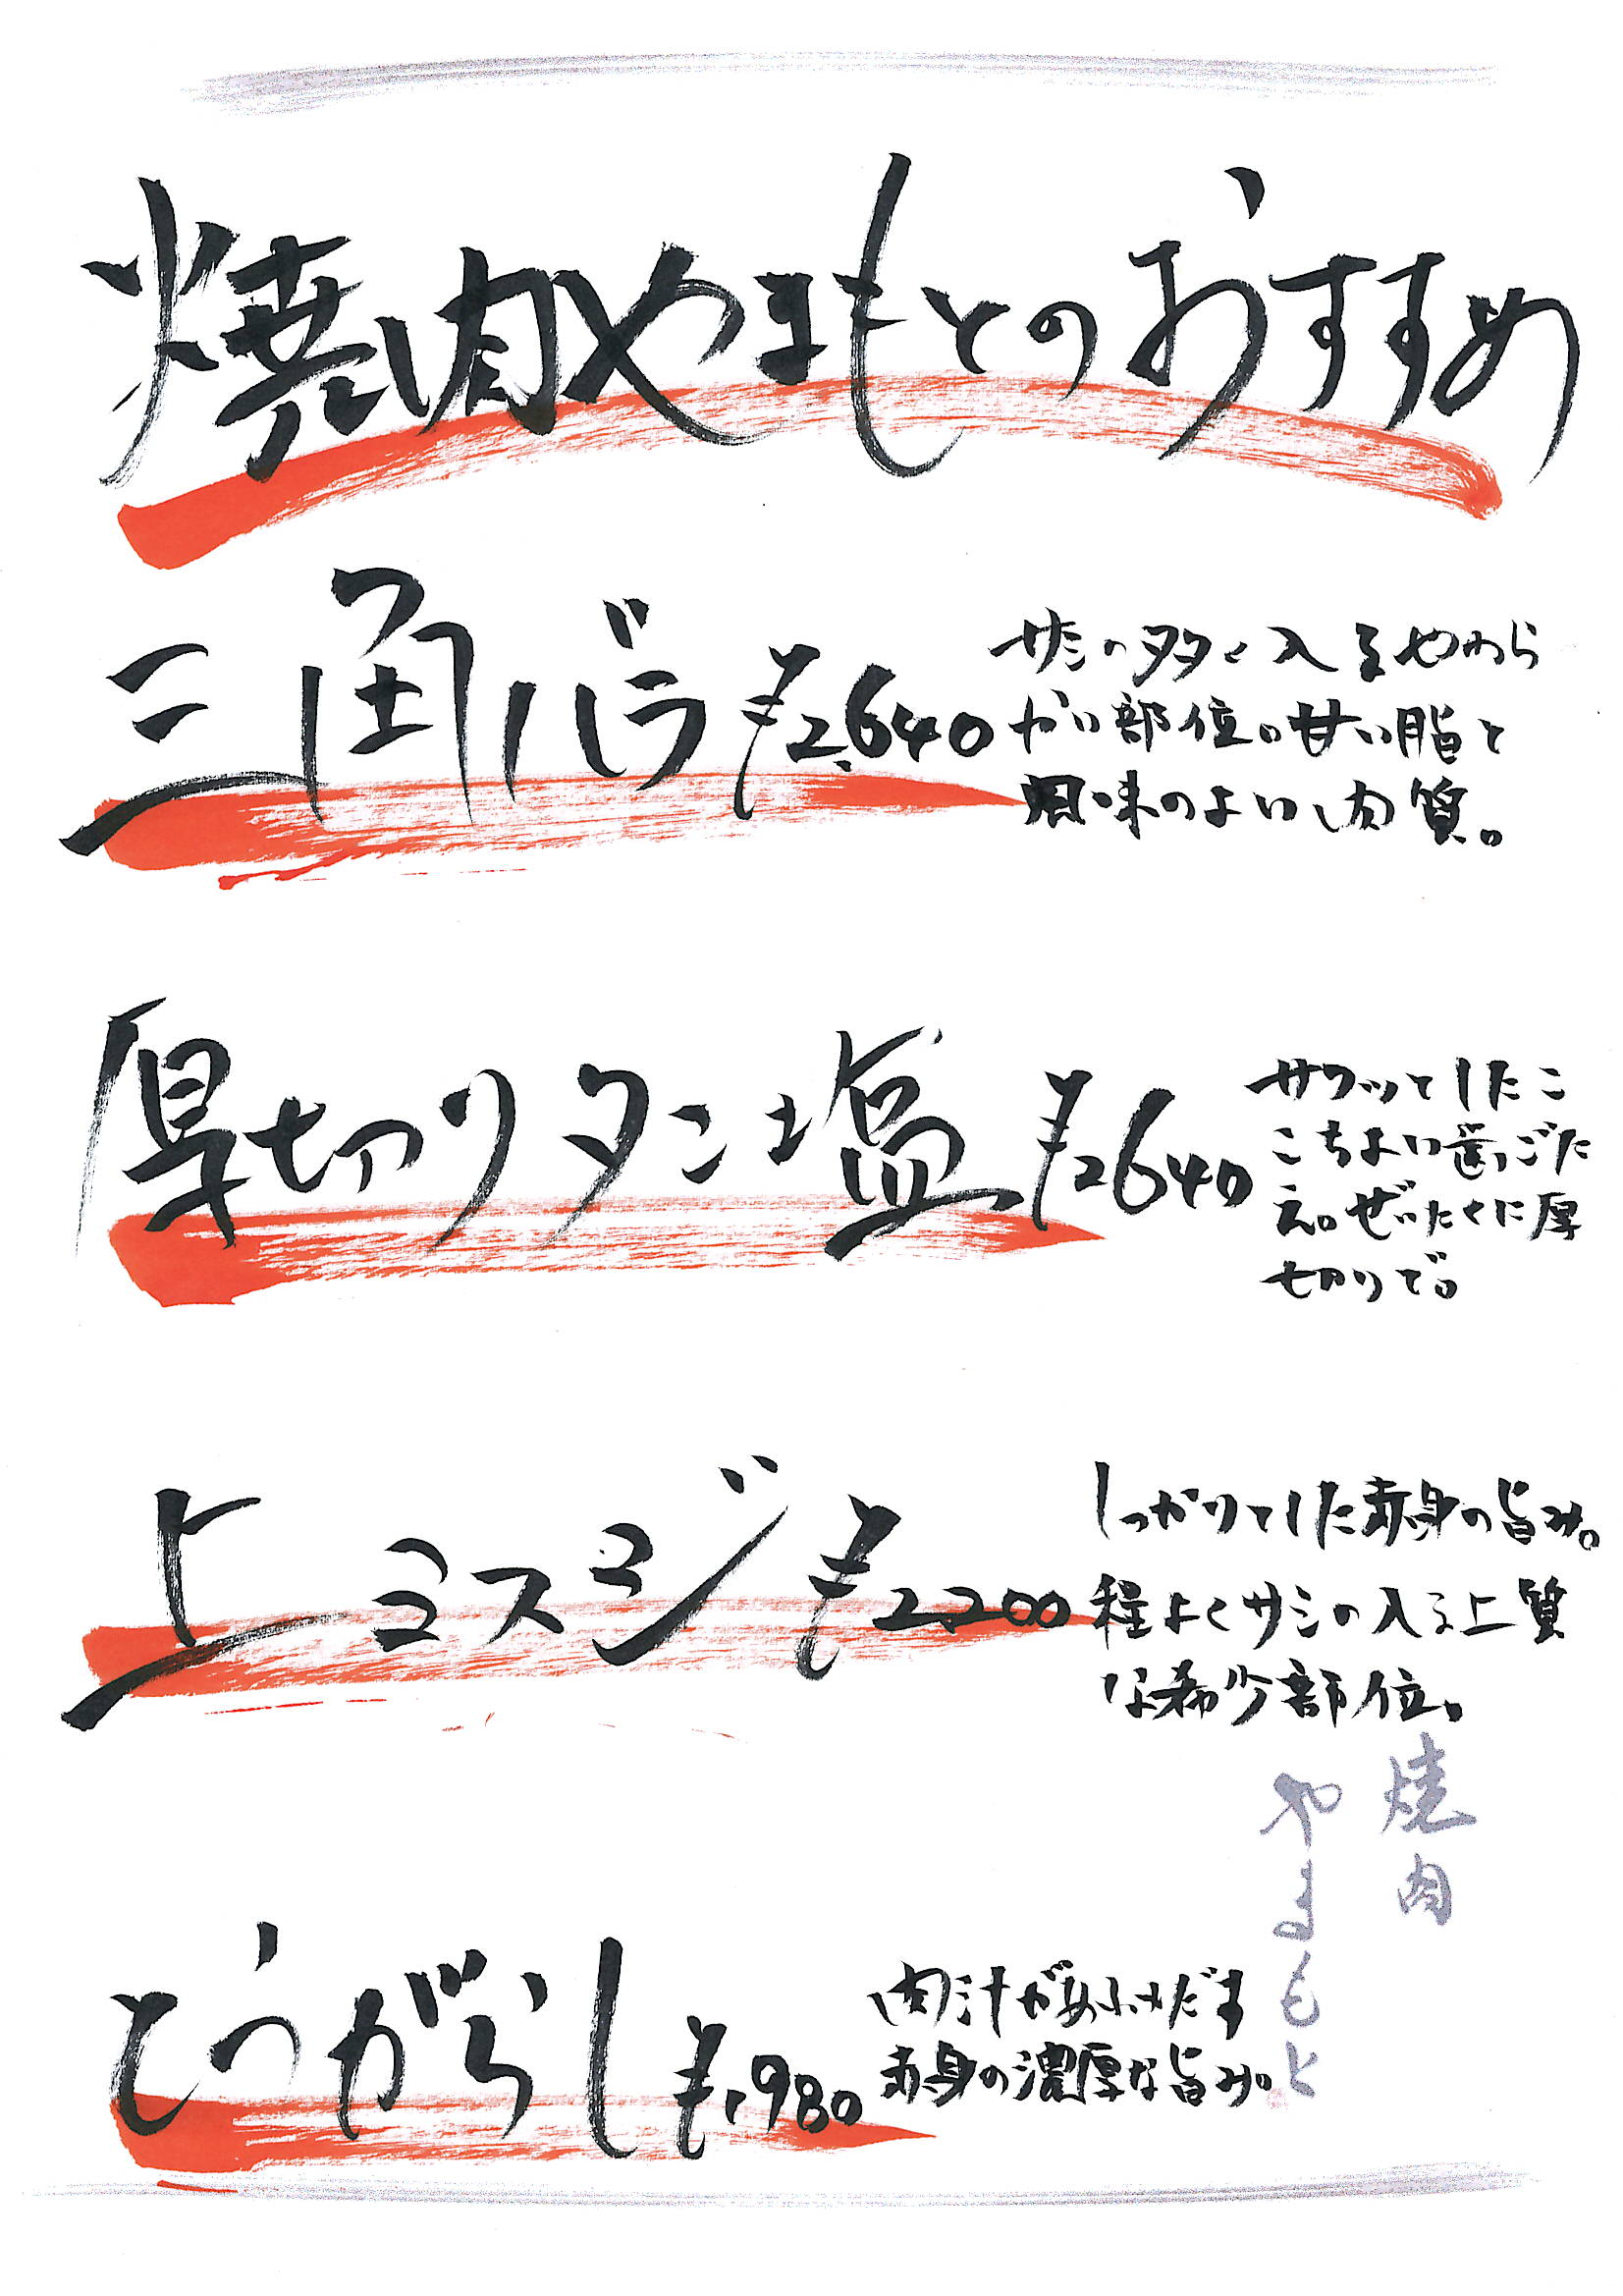 焼肉やまもとのおすすめ
三角バラ ¥2,640
サシの多く入るやわら
かい部位。甘い脂と
風味のよい肉質。
厚切りタン塩 ¥2640
サクッとしたこ
こちよい歯ごた
え。ぜいたくに厚
切りで。
上ミスジ ¥2200
しっかりとした赤身の旨み。
程よくサシの入る上質
な希少部位。
とうがらし ¥1980
肉汁があふれだす
赤身の濃厚な旨み。
焼肉
やまもと